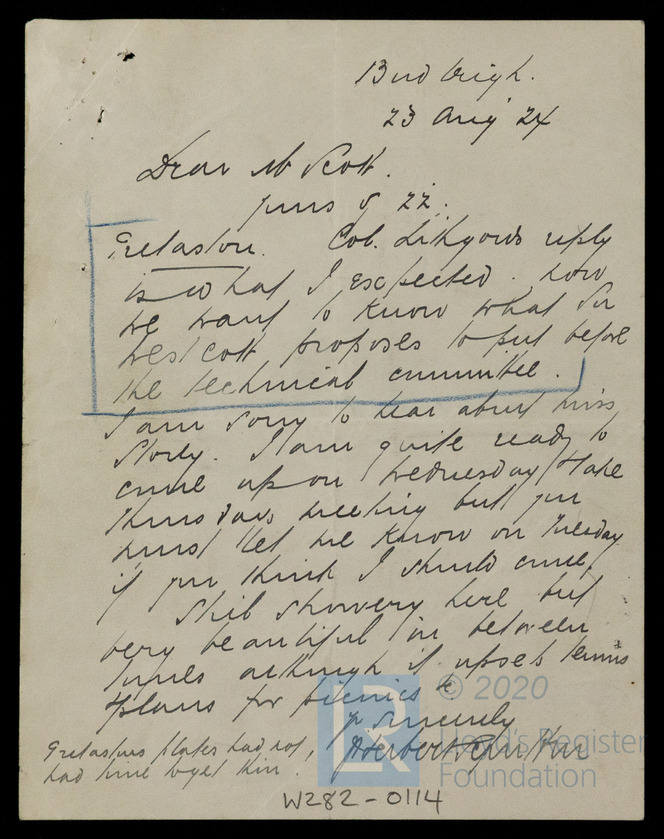 Budleigh.
23 Aug 24
Dear Mr Scott.
yours of 22.
Col. reply
is what I expected. Now
we want to know what Sir
Westcott proposes to put before
the technical committee.
I am sorry to hear about Miss
Storey. I am quite ready to
come up on Wednesday & take
Thursdays meeting but you
must let me know on Tuesday
if you think I should come.
Still showery here but
very beautiful in between
times although it upsets tennis
& plans for picnics &c
yr sincerely
Herbert
plates had not,
had time to get thin.
W282-0114
© 2020
Lloyd's Register
Foundation
LR